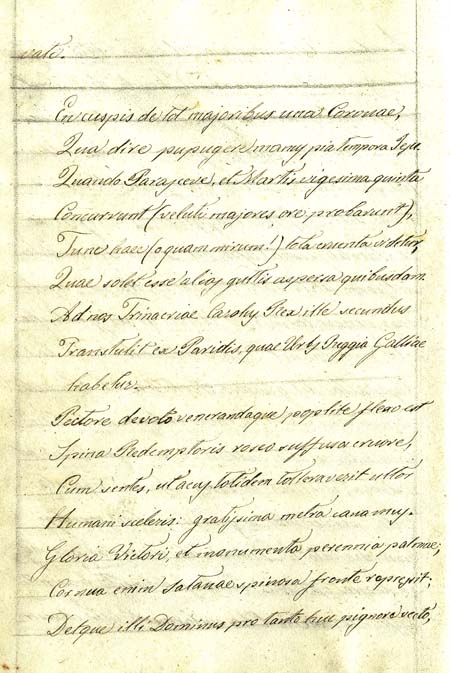 vate.
En cuspis de tot majoribus una Coronae,
Qua dire pupugere manus pia tempora Jesu
Quando Parasceve, et Martis vigesima quinta
Concurrunt (veluti majores ore probarunt),
Tunc haec (o quam mirum!) tota cruenta videtur,
Quae solet esse alias guttis aspersa quibusdam
Ad nos Trinacriae Carolus Rex ille secundus
Transtulit ex Paridis, quae Urbs Reggia Galliae
habetur.
Pectore devoto venerandaque poplite flexo est
Spina Redemptoris roseo suffusa cruore,
Cum sentes, ut acus totidem tolleraverit ultor
Humani sceleris: gratissima metra canamus.
Gloria Victori, et monumenta perennia palmae;
Cornua enim Satanae spinosa fronte repressit;
Detque illi Dominus pro tanto huc pignore vecto,